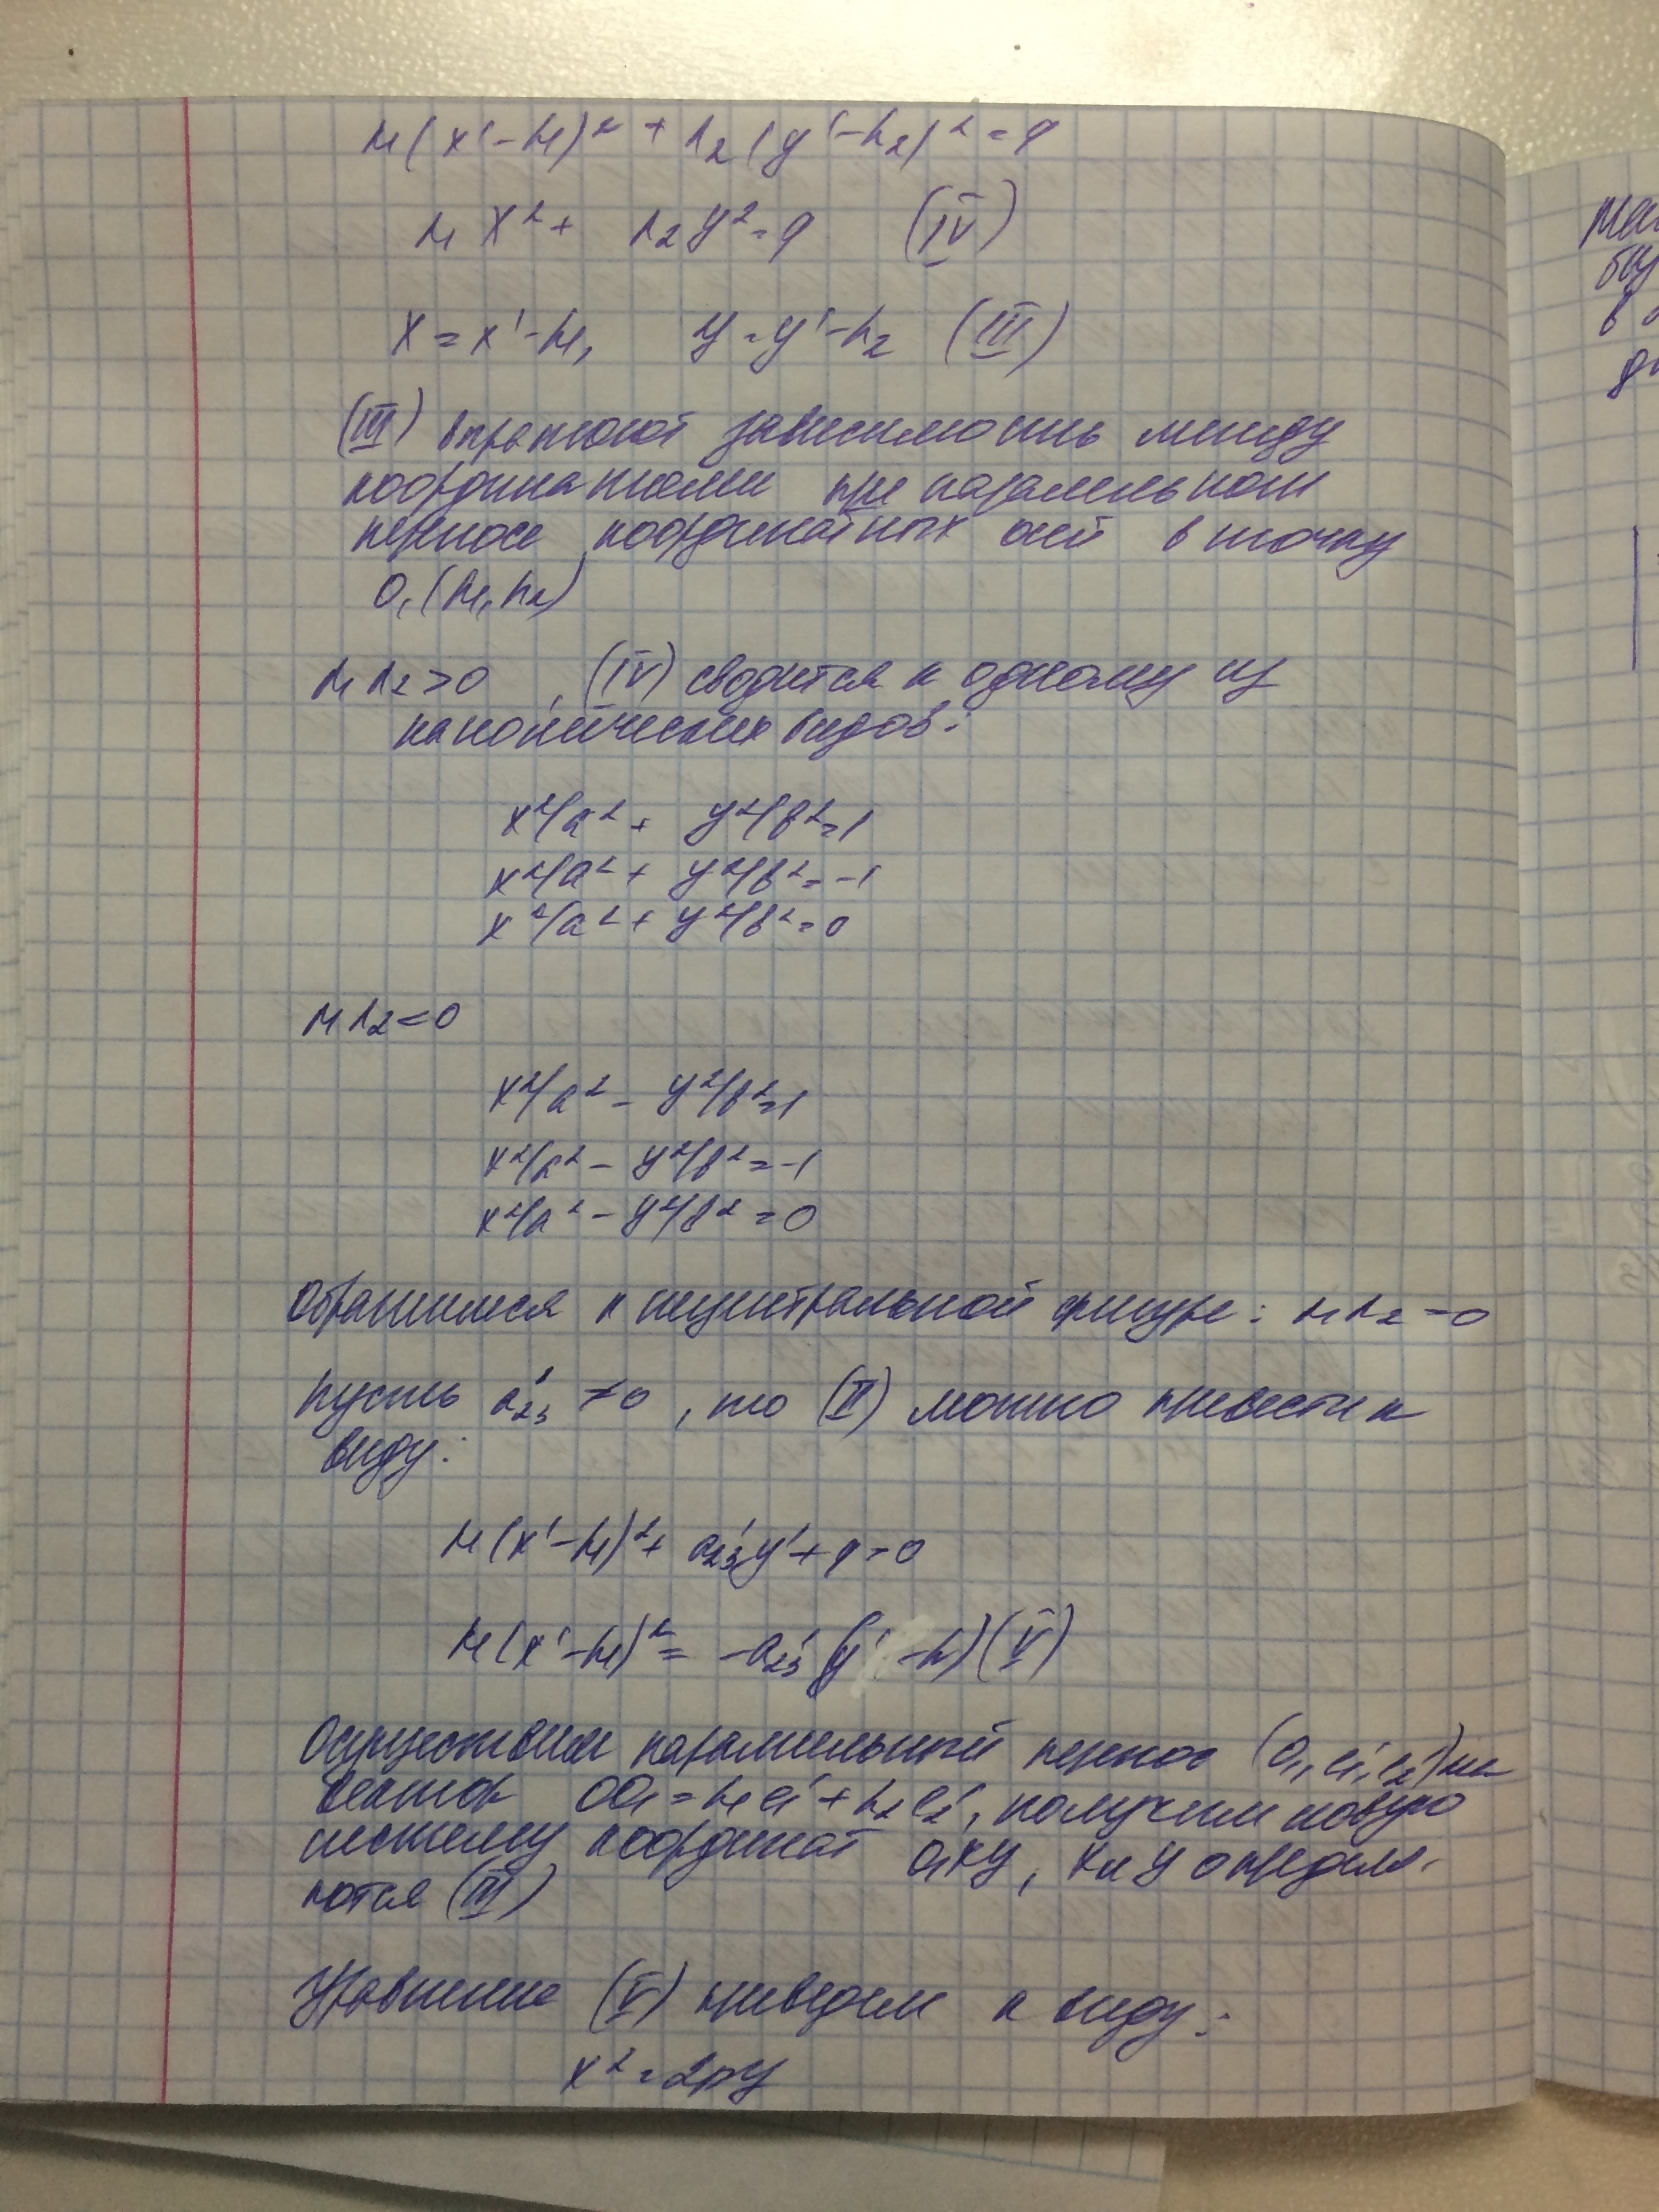 λ₁(x'-h₁)² + λ₂(y'-h₂)² = q
λ₁X² + λ₂Y² = q (IV)
X = x'-h₁, Y = y'-h₂ (III)
(III) выражают зависимость между
координатами при паралельном
переносе координатных осей в точку
O₁(h₁, h₂)
λ₁λ₂>0, (IV) сводится к одному из
канонических видов:
x²/a² + y²/b² = 1
x²/a² + y²/b² = -1
x²/a² + y²/b² = 0
λ₁λ₂<0
x²/a² - y²/b² = 1
x²/a² - y²/b² = -1
x²/a² - y²/b² = 0
Обратимся к нецентральной фигуре: λ₁λ₂=0
Пусть a'₂₃ ≠ 0, то (II) можно привести к
виду:
λ₁(x'-h₁)² + a'₂₃y' + q = 0
λ₁(x'-h₁)² = -a'₂₃(y'-h) (V)
Осуществим паралельный перенос (O₁, e₁', e₂') на
вектор OO₁ = h₁e₁' + h₂e₂', получим новую
систему координат O₁XY, X и Y определя-
ются (III)
Уравнение (V) приведем к виду:
x² = 2py
мат
бу
в